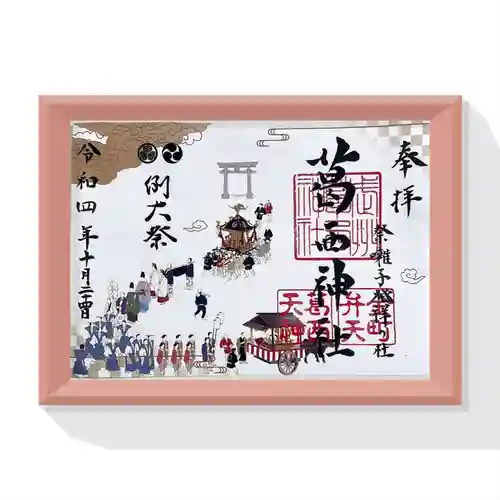 奉拝
祭囃子発祥の社
葛西神社
金町
弁天
葛西
天神
例大祭
令和四年十月